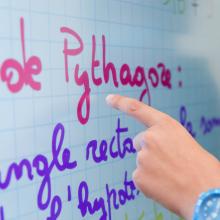 de Pythagore :
angle recta
la som
l'hypoté